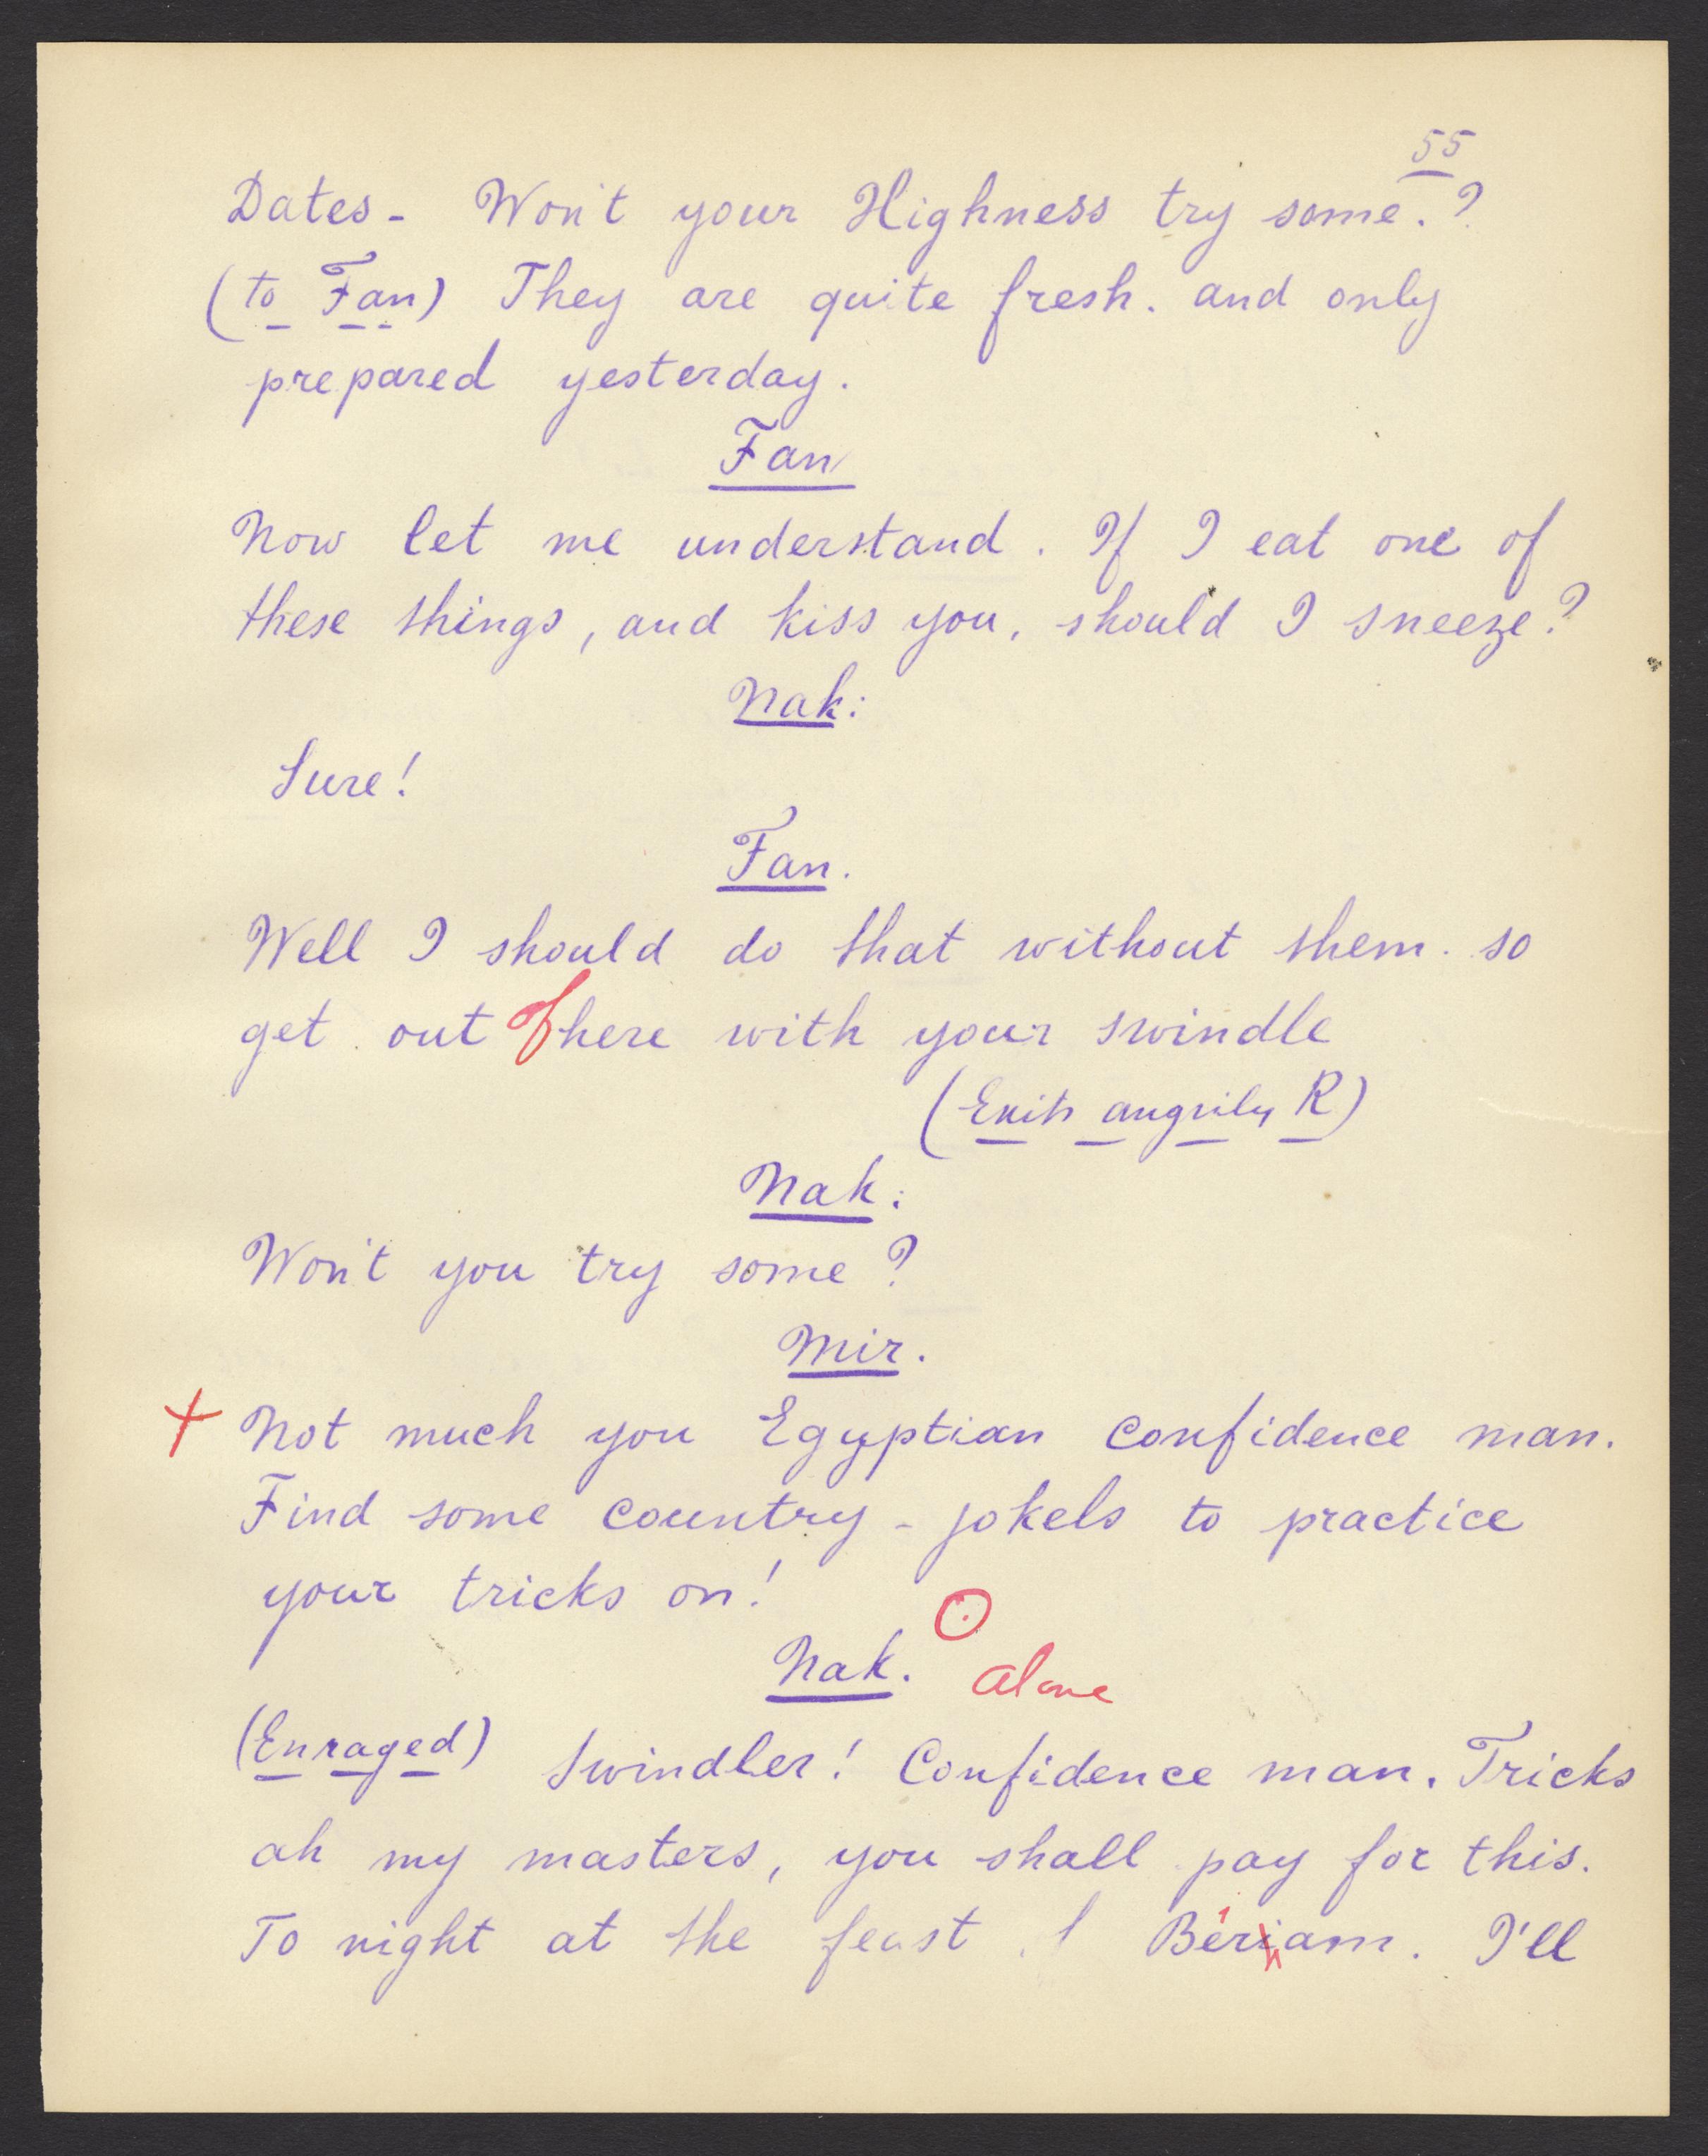 55
Dates - Won't your Highness try some.?
(to Fan) They are quite fresh. and only
prepared yesterday.
Fan
Now let me understand. If I eat one of
these things, and kiss you, should I sneeze?
Nak:
Sure!
Fan.
Well I should do that without them. so
get out of here with your swindle
(Exits angrily R)
Nak:
Won't you try some?
Mir.
+ Not much you Egyptian confidence man.
Find some country - jokels to practice
your tricks on!
Nak. Alone
(Enraged) Swindler! Confidence man. Tricks
ah my masters, you shall pay for this.
To night at the feast I'll